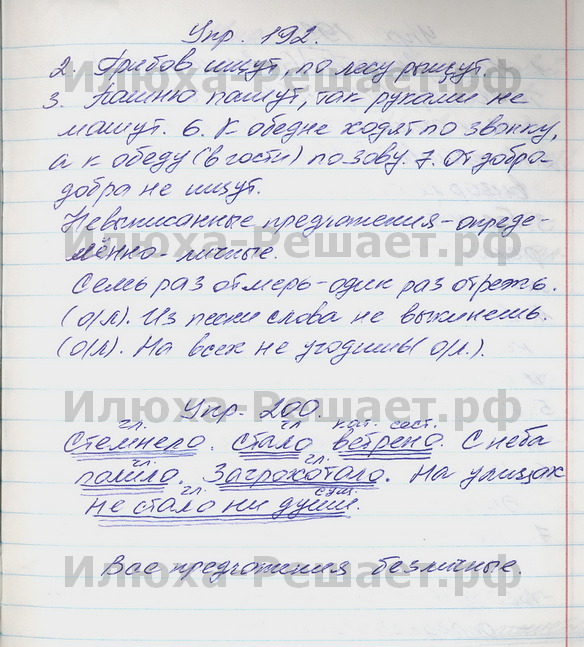 Упр. 192.
2. Грибов ищут, по лесу рыщут.
3. Пашню пашут, так руками не
машут. 6. К обедне ходят по звонку,
а к обеду (в гости) по зову. 7. От добра-
добра не ищут.
Невыписанные предложения - опреде-
лённо - личные.
Илюха-Решает.рф
Семь раз отмерь - один раз отрежь.
(о/л). Из песни слова не выкинешь.
(о/л). На всех не угодишь (о/л.).
Упр. 200.
Илюха-Решает.рф
гл. гл кат. сост.
Стемнело. Стало ветрено. С неба
гл. гл.
полило. Загрохотало. На улицах
гл. сущ.
не стало ни души.
Все предложения безличные.
Илюха-Решает.рф